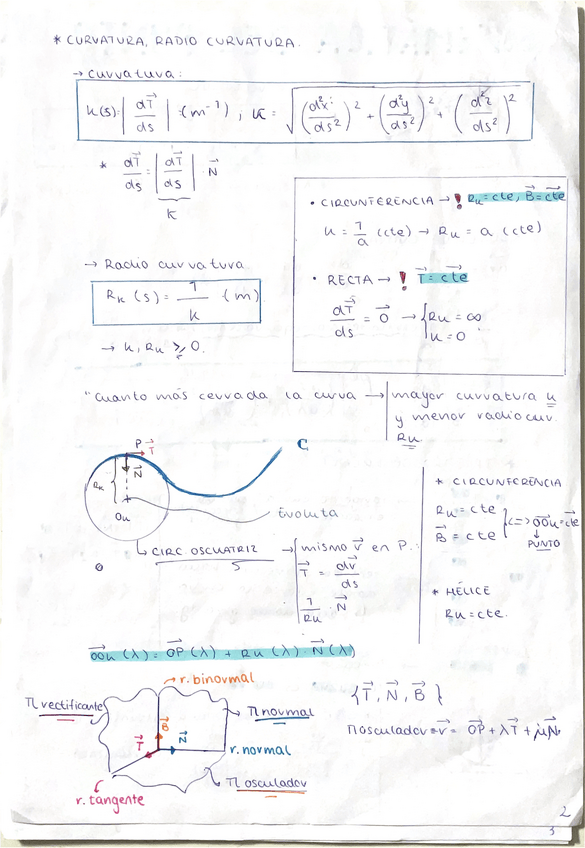 * CURVATURA, RADIO CURVATURA.
→ curvatura:
k(s) = | dT⃗/ds | (m⁻¹) ; k = √( (d²x/ds²)² + (d²y/ds²)² + (d²z/ds²)² )
* dT⃗/ds = | dT⃗/ds | · N⃗
k
• CIRCUNFERENCIA → ! Rk = cte, B⃗ = cte
k = 1/a (cte) → Rk = a (cte)
→ Radio curvatura
Rk (s) = 1/k (m)
→ k, Rk ≥ 0.
• RECTA → ! T⃗ = cte
dT⃗/ds = 0⃗ → { Rk = ∞
k = 0
"cuanto más cerrada la curva → mayor curvatura k
y menor radio cur.
Rk
P T⃗
N⃗
Rk
Ok
C
Evoluta
↳ CIRC OSCUATRIZ → { mismo v⃗ en P.
T⃗ = dv⃗/ds
1/Rk · N⃗
* CIRCUNFERENCIA
Rk = cte
B⃗ = cte
<=> OOk = cte
↓
PUNTO
* HÉLICE
Rk = cte.
OOk (λ) = OP⃗ (λ) + Rk (λ) · N⃗ (λ)
r. binormal
π rectificante
π normal
B⃗
T⃗
N⃗
r. normal
π osculador
r. tangente
{T⃗, N⃗, B⃗ }
πosculador = r⃗ = OP⃗ + λT⃗ + μN⃗
2
3